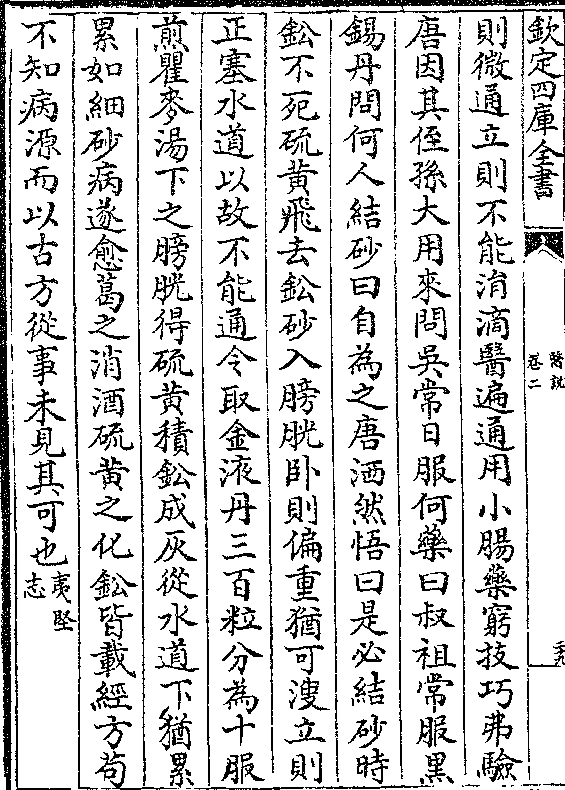 欽定四庫全書
醫說
卷二
則微通立則不能涓滴醫遍通用小腸藥窮技巧弗驗
唐因其侄孫大用來問吳常日服何藥曰叔祖常服黑
錫丹問何人結砂曰自為之唐洒然悟曰是必結砂時
鈆不死硫黃飛去鈆砂入膀胱卧則偏重猶可溲立則
正塞水道以故不能通令取金液丹三百粒分為十服
煎瞿麥湯下之膀胱得硫黃積鈆成灰從水道下猶累
累如細砂病遂愈葛之消酒硫黃之化鈆皆載經方苟
不知病源而以古方從事未見其可也夷堅
志